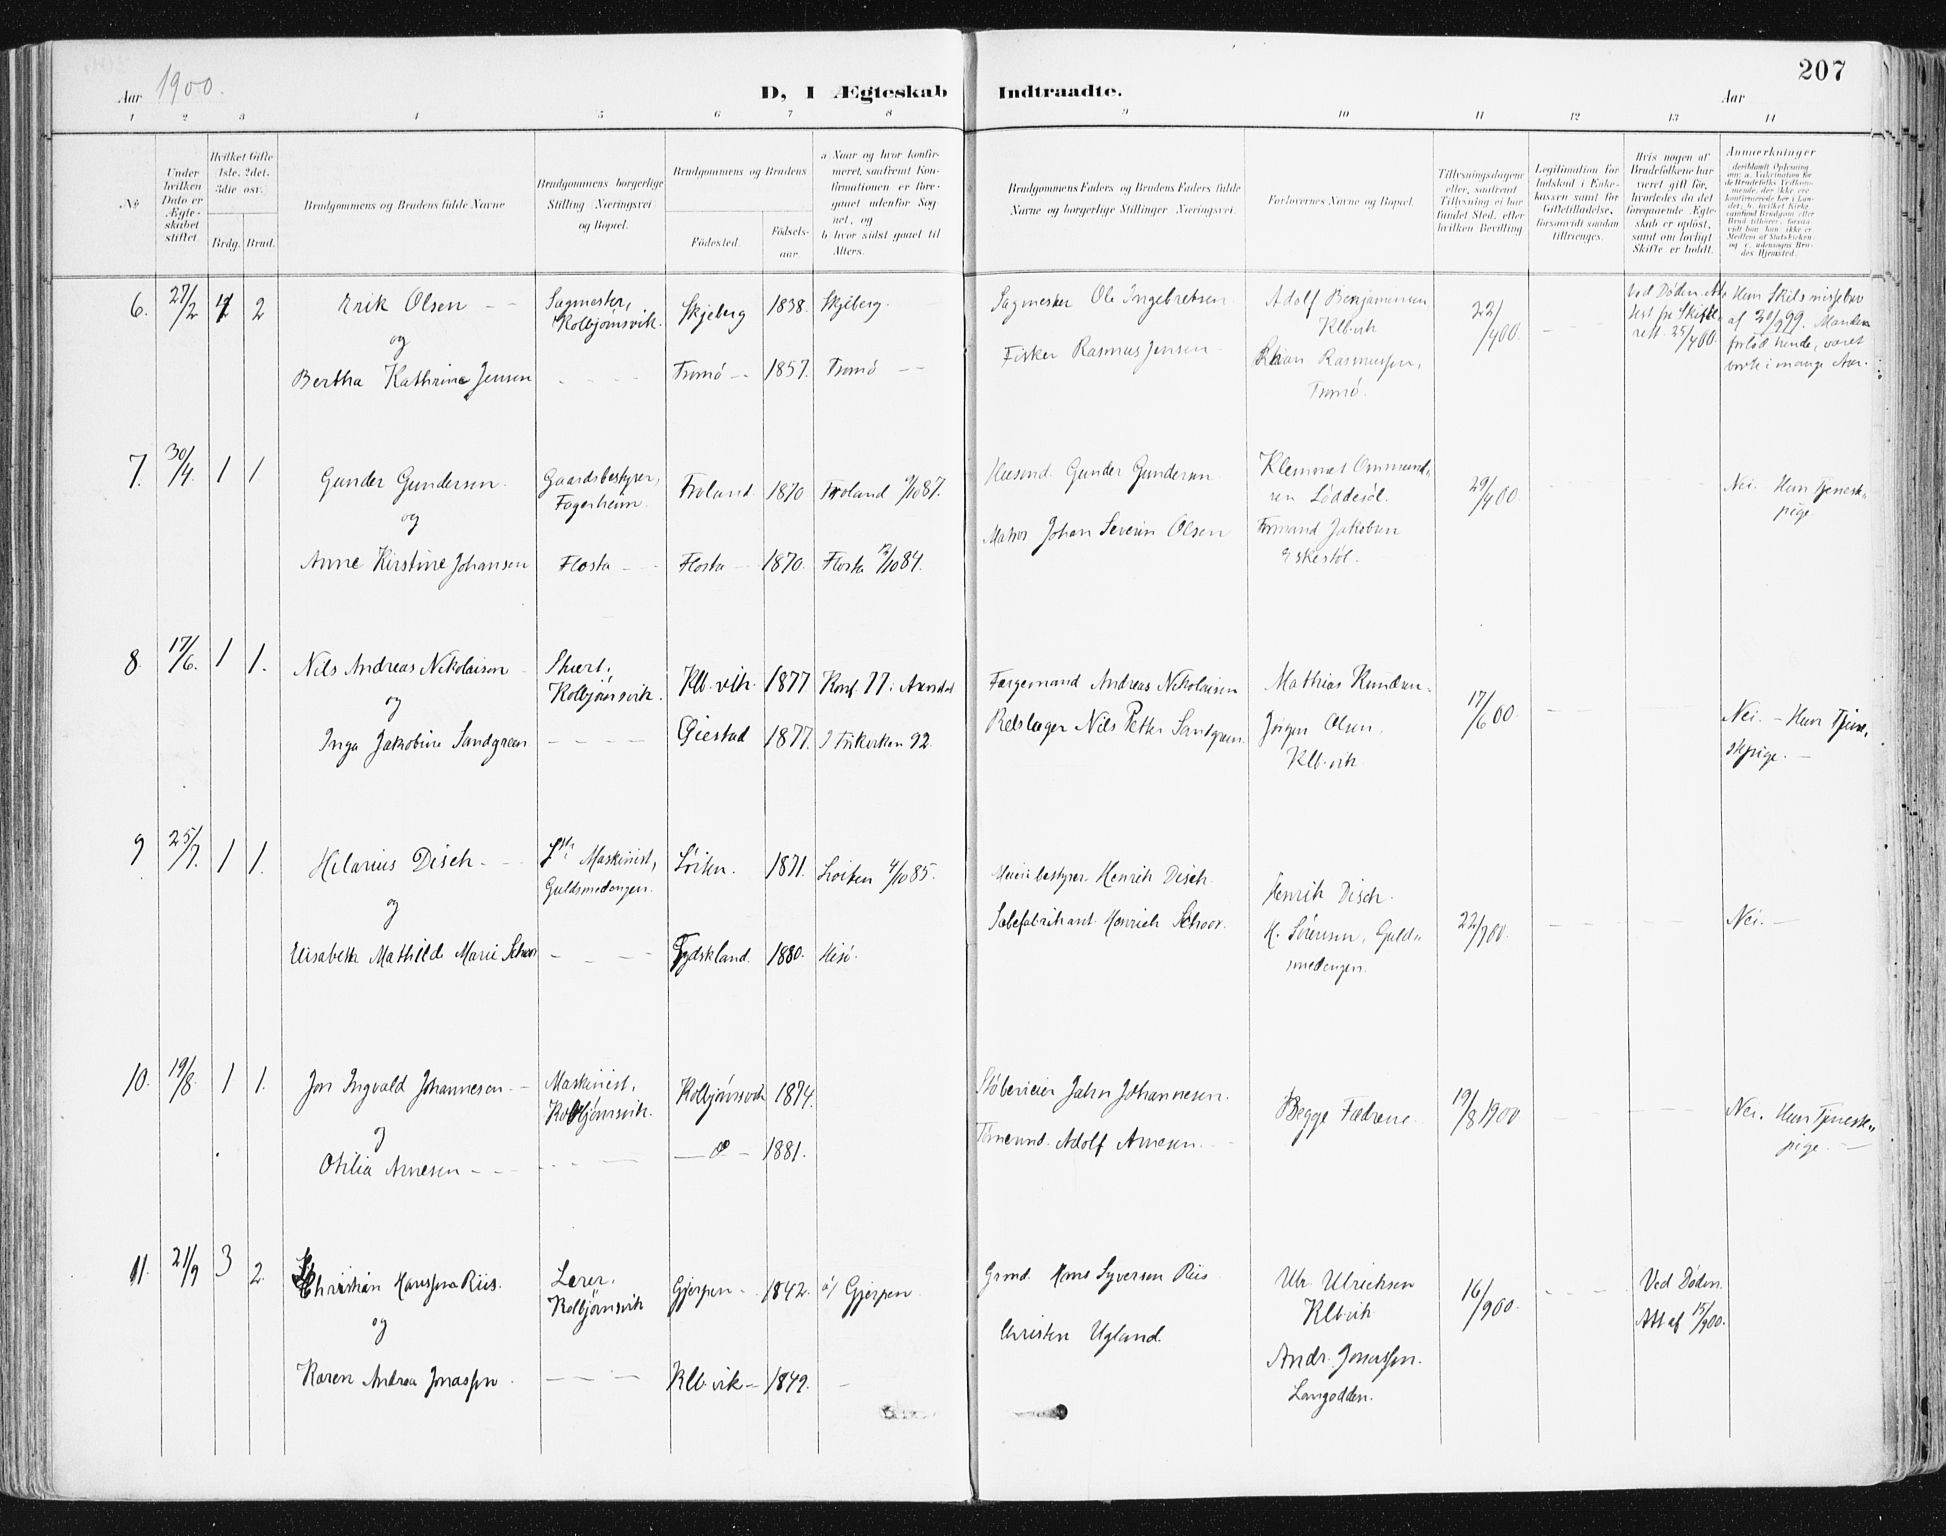 207
Aar 1900.
D, I Ægteskab Indtraadte.
Aar
1 2 3 4 5 6 7 8 9 10 11 12 13 14
№
Under hvilken Dato er Ægteskabet stiftet
Hvilket Gifte 1ste, 2det, 3die osv.
Brdg. Brud.
Brudgommens og Brudens fulde Navne
Brudgommens borgerlige Stilling (Næringsvei) og Bopæl.
Brudgommens og Brudens
Födested.
Födselsaar.
a Naar og hvor konfirmeret, saafremt Konfirmationen er foregaaet udenfor Sognet, og
b hvor sidst gaaet til Alters.
Brudgommens Faders og Brudens Faders fulde Navne og borgerlige Stillinger (Næringsvei)
Forlovernes Navne og Bopæl.
Tillysningsdagene eller, saafremt Tillysning ei har fundet Sted, efter hvilken Bevilling
Legitimation for Indskud i Enkekassen samt for Giftetilladelse, forsaavidt saadan tiltrænges.
Hvis nogen af Brudefolkene har været gift för, hvorledes da det foregaaende Ægteskab er oplöst, samt om lovligt Skifte er holdt.
Anmerkninger
6. 27/2 2 Erik Olsen Sagmester, Kolbjørnsvik. Skjeberg 1838. Skjeberg. Sagmester Ole Ingebretsen Adolf Benjaminsen Klbvik 22/400.
og
Bertha Kathrine Jensen Tromø 1857. Tromø Fisker Rasmus Jensen Rasmussen, Tromø.
Ved Døden. Att fr Skifterett. 25/400.
Hun Skilsmissebev af 20/999. Manden forlod hende, været borte i mange Aar.
7. 30/4. 1 1 Gunder Gundersen. Gaardsbestyrer, Fagerheim. Froland 1870 Froland 9/1087. Huseiend. Gunder Gundersen Klemmet Ommundsen Løddesøl. 29/400
og
Anne Kirstine Johansen Flosta Flosta 1870. Flosta 12/1084. Matros Johan Severin Olsen Formand Jakobsen Eskestøl.
Nei. Hun Tjenestpige
8. 17/6. 1 1. Nils Andreas Nikolaisen Stuert, Kolbjørnsvik. Klb.vik. 1877 Konf. 77 i Arendal Færgemand Andreas Nikolaisen Mathias Knudsen. 17/600
og
Inga Jakobine Sandgreen Giestad 1877. I Frikirken 92. Rebslager Nils Petter Sandgreen. Jørgen Olsen. Klb.vik
Nei. - Hun Tjenestpige.
9 25/7. 1 1. Hilarius Disch. 1ste Maskinist, Guldsmedengen. Røiken. 1871. Røiken 4/1085. Meieribestyrer Henrik Disch. Henrik Disch. 22/700.
og
Elisabeth Mathilde Marie Schoor Tydskland. 1880. Hisø. Sæbefabrikant Henrich Schoor. H. Sørensen, Guldsmedengen.
Nei.
10. 19/8. 1 1. Jon Ingvald Johannesen Maskinist, Kolbjørnsvik. Kolbjørnsvik 1874. Støberieier Jahn Johannesen. Begge Fædrene. 19/8 1900
og
Otilia Arnesen do 1881. Tømmermd. Adolf Arnesen.
Nei. Hun Tjenestpige.
11. 21/9 3 2. Christian Hanssen Riis. Lærer, Kolbjørnsvik Gjerpen 1842. a/ Gjerpen. Grmd. Hans Syversen Riis Ulr. Ulrichsen Klbvik 16/900.
og
Karen Andrea Jonassen. Klb.vik 1849. Christen Ugland. Andr. Jonassen. Langodden.
Ved Døden. Att af 15/900.